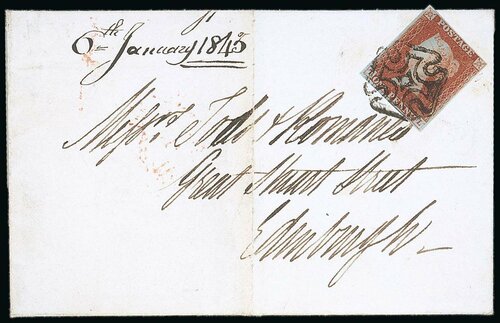 6th January 1843
Messrs Todd & Romanes
Great Stuart Street
Edinburgh
POSTAGE